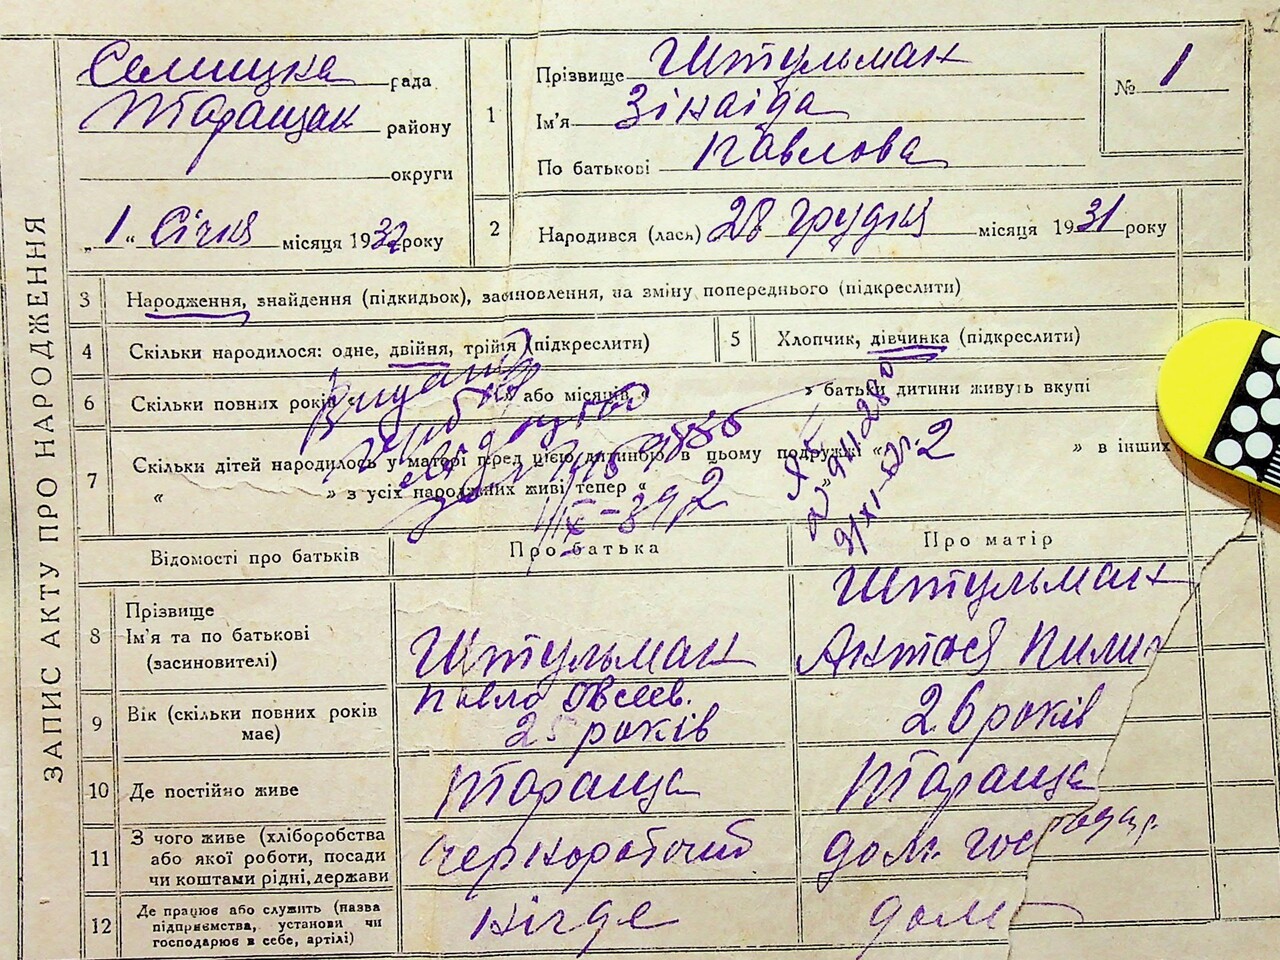 ЗАПИС АКТУ ПРО НАРОДЖЕННЯ
Селищка рада
Таращак району
округи
„1" Січня місяця 1932 року
1
Прізвище Штульман
Ім'я Зінаіда
По батькові Павлова
№ 1
2
Народився (лася) 28 грудня місяця 1931 року
3 Народження, знайдення (підкидьок), засиновлення, на зміну попереднього (підкреслити)
4 Скільки народилося: одне, двійня, трійня (підкреслити)
5 Хлопчик, дівчинка (підкреслити)
6 Скільки повних років « » або місяців « » батьки дитини живуть вкупі
7 Скільки дітей народилось у матері перед цією дитиною в цьому подружжі « » в інших
« » з усіх народжених живі тепер « »
Відомості про батьків Про батька Про матір
8 Прізвище
Ім'я та по батькові
(засиновителі)
Штульман
Павло Овсеев.
Штульман
Антося Пилип
9 Вік (скільки повних років
має)
25 років
26 років
10 Де постійно живе Тараща Тараща
11 З чого живе (хліборобства
або якої роботи, посади
чи коштами рідні, держави
чернорабочий
дом. господар.
12 Де працює або служить (назва
підприємства, установи чи
господарює в себе, артілі)
нігде
дом